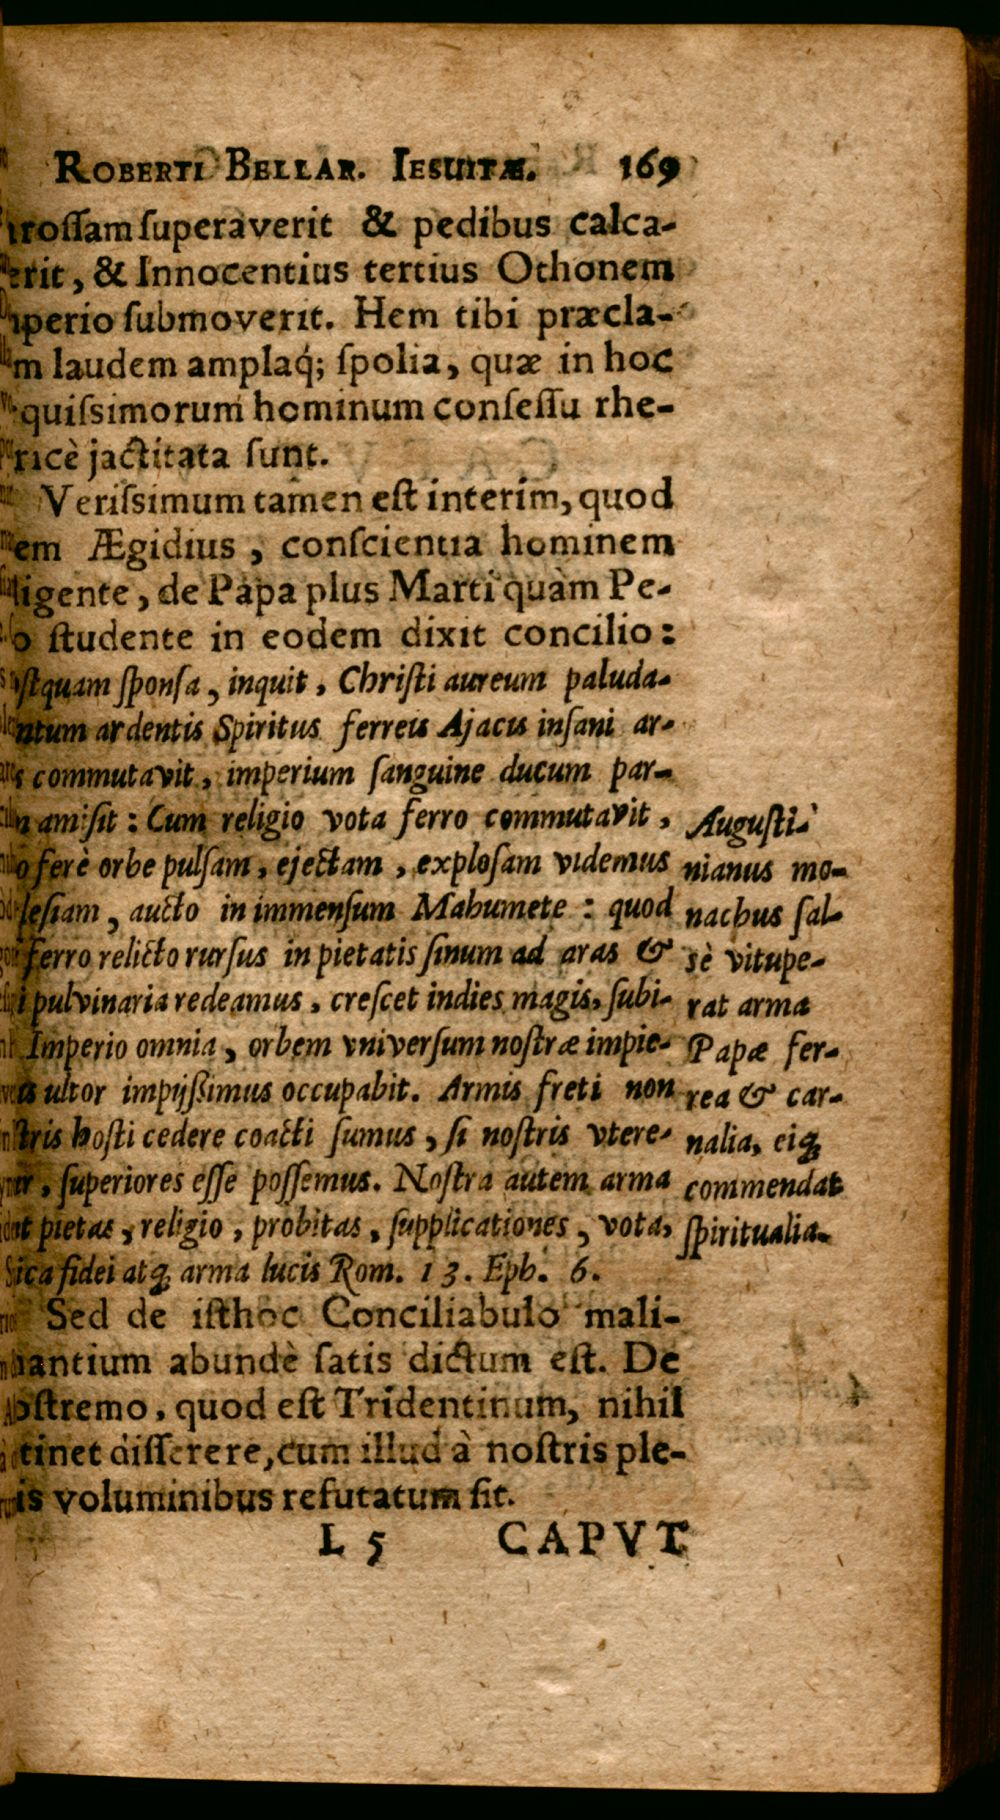 ROBERTI BELLAR. IESUITÆ. 169
roſſam ſuperaverit & pedibus calca-
erit, & Innocentius tertius Othonem
perio ſubmoverit. Hem tibi præcla-
m laudem amplaq́; ſpolia, quæ in hoc
quiſsimorum hominum conſeſſu rhe-
ricè jactitata ſunt.
Veriſsimum tamen eſt interim, quod
em Ægidius, conſcientia hominem
ligente, de Papa plus Marti quàm Pe-
o ſtudente in eodem dixit concilio:
ſtquam ſponſa, inquit, Chriſti aureum paluda-
ntum ardentis Spiritus ferreis Ajacis inſani ar-
s commutavit, imperium ſanguine ducum par-
n amiſit: Cum religio vota ferro commutavit,
o ferè orbe pulſam, ejectam, exploſam videmus
leſiam, aucto in immenſum Mahumete: quod
ferro relicto rurſus in pietatis ſinum ad aras &
i pulvinaria redeamus, creſcet indies magis, ſubi-
Imperio omnia, orbem vniverſum noſtræ impie-
is ultor impijſsimus occupabit. Armis freti non
tris hoſti cedere coacti ſumus, ſi noſtris vtere-
r, ſuperiores eſſe poſſemus. Noſtra autem arma
t pietas, religio, probitas, ſupplicationes, vota,
ica fidei atq; arma lucis Rom. 13. Eph. 6.
Sed de iſthoc Conciliabulo mali-
nantium abundè ſatis dictum eſt. De
oſtremo, quod eſt Tridentinum, nihil
tinet diſſerere, cum illud à noſtris ple-
is voluminibus refutatum ſit.
L 5 CAPVT
Auguſti-
nianus mo-
nachus ſal-
sè vitupe-
rat arma
Papæ fer-
rea & car-
nalia, eiq;
commendat
ſpiritualia.